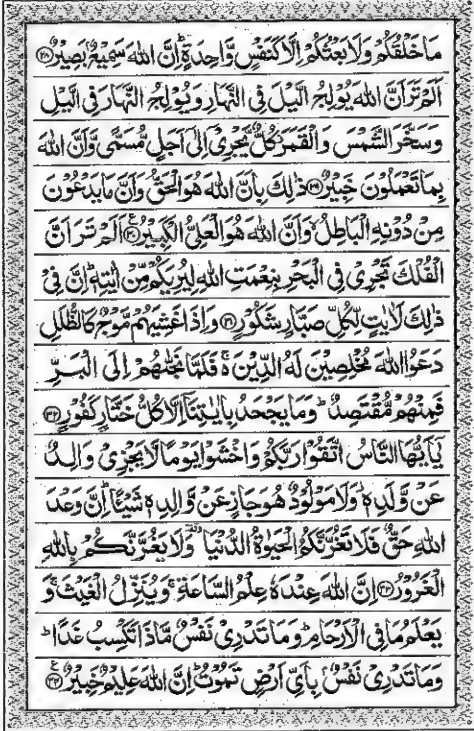 مَا خَلۡقُكُمۡ وَلَا بَعۡثُكُمۡ اِلَّا كَنَفۡسٍ وَّاحِدَةٍ ؕ اِنَّ اللّٰهَ سَمِيۡعٌۢ بَصِيۡرٌ ﴿۲۸﴾
اَلَمۡ تَرَ اَنَّ اللّٰهَ يُوۡلِجُ الَّيۡلَ فِى النَّهَارِ وَيُوۡلِجُ النَّهَارَ فِى الَّيۡلِ
وَسَخَّرَ الشَّمۡسَ وَالۡقَمَرَ كُلٌّ يَّجۡرِىۡۤ اِلٰٓى اَجَلٍ مُّسَمًّى وَّاَنَّ اللّٰهَ
بِمَا تَعۡمَلُوۡنَ خَبِيۡرٌ ﴿۲۹﴾ ذٰلِكَ بِاَنَّ اللّٰهَ هُوَ الۡحَقُّ وَاَنَّ مَا يَدۡعُوۡنَ
مِنۡ دُوۡنِهِ الۡبَاطِلُ ۙ وَاَنَّ اللّٰهَ هُوَ الۡعَلِىُّ الۡكَبِيۡرُ ﴿۳۰﴾ اَلَمۡ تَرَ اَنَّ
الۡفُلۡكَ تَجۡرِىۡ فِى الۡبَحۡرِ بِنِعۡمَتِ اللّٰهِ لِيُرِيَكُمۡ مِّنۡ اٰيٰتِهٖ ؕ اِنَّ فِىۡ
ذٰلِكَ لَاٰيٰتٍ لِّكُلِّ صَبَّارٍ شَكُوۡرٍ ﴿۳۱﴾ وَاِذَا غَشِيَهُمۡ مَّوۡجٌ كَالظُّلَلِ
دَعَوُا اللّٰهَ مُخۡلِصِيۡنَ لَهُ الدِّيۡنَ ۚ فَلَمَّا نَجّٰٮهُمۡ اِلَى الۡبَرِّ
فَمِنۡهُمۡ مُّقۡتَصِدٌ ؕ وَمَا يَجۡحَدُ بِاٰيٰتِنَاۤ اِلَّا كُلُّ خَتَّارٍ كَفُوۡرٍ ﴿۳۲﴾
يٰۤاَيُّهَا النَّاسُ اتَّقُوۡا رَبَّكُمۡ وَاخۡشَوۡا يَوۡمًا لَّا يَجۡزِىۡ وَالِدٌ
عَنۡ وَّلَدِهٖ وَلَا مَوۡلُوۡدٌ هُوَ جَازٍ عَنۡ وَّالِدِهٖ شَيۡــًٔا ؕ اِنَّ وَعۡدَ
اللّٰهِ حَقٌّ فَلَا تَغُرَّنَّكُمُ الۡحَيٰوةُ الدُّنۡيَا ۥ وَلَا يَغُرَّنَّكُمۡ بِاللّٰهِ
الۡغَرُوۡرُ ﴿۳۳﴾ اِنَّ اللّٰهَ عِنۡدَهٗ عِلۡمُ السَّاعَةِ ۚ وَيُنَزِّلُ الۡغَيۡثَ ۚ وَ
يَعۡلَمُ مَا فِى الۡاَرۡحَامِ ؕ وَمَا تَدۡرِىۡ نَفۡسٌ مَّاذَا تَكۡسِبُ غَدًا ؕ
وَمَا تَدۡرِىۡ نَفۡسٌۢ بِاَىِّ اَرۡضٍ تَمُوۡتُ ؕ اِنَّ اللّٰهَ عَلِيۡمٌ خَبِيۡرٌ ﴿۳۴﴾